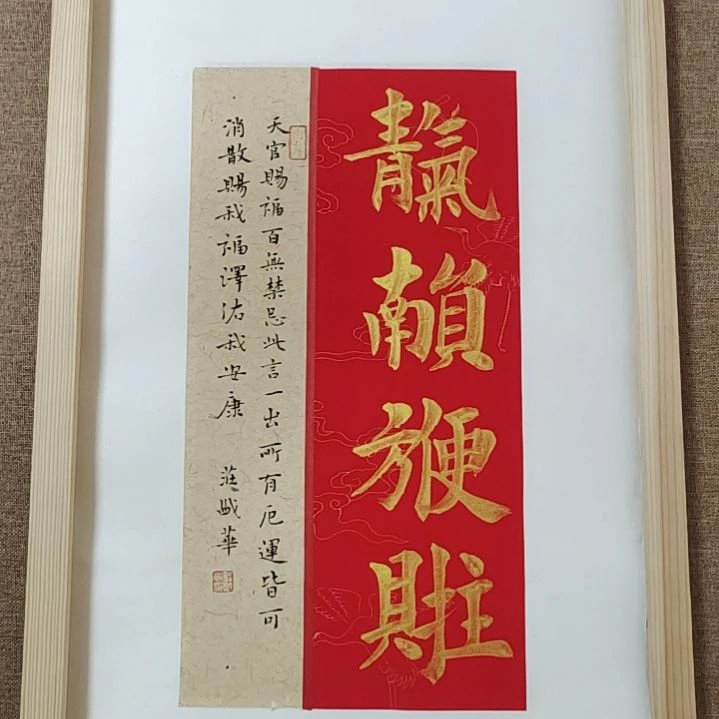 靝
天官賜福百無禁忌此言一出所有厄運皆可
消散賜我福澤佑我安康
莊 華